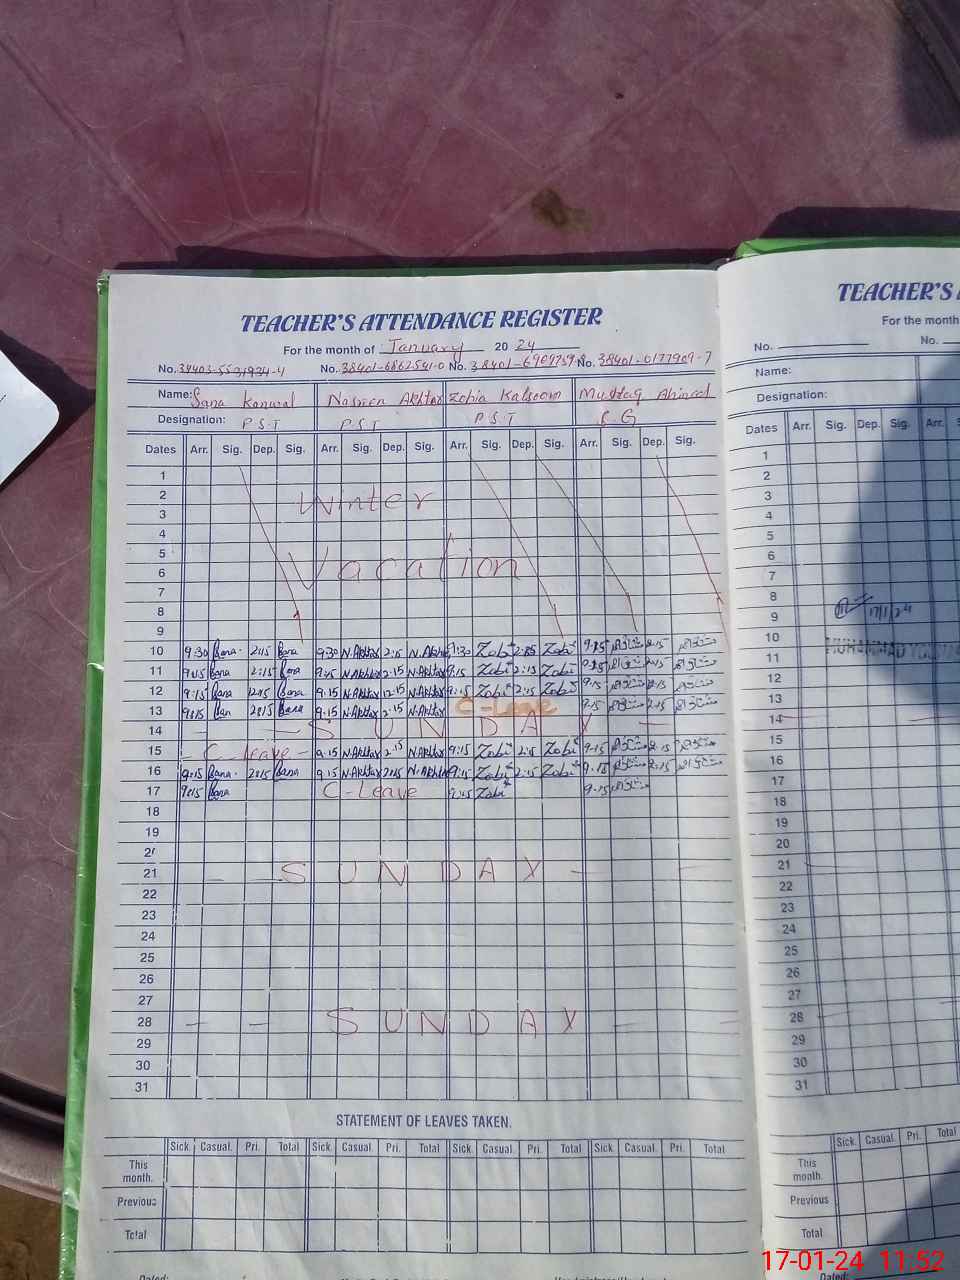 TEACHER'S ATTENDANCE REGISTER
For the month of January 2024
No. 38401-6862541-0 No. No. 38401-0177909-7
Name: Sana Kanwal Nasreen Akhtar Zobia Kalsoom Mushtaq Ahmed
Designation: P.S.T P.S.T P.S.T
Dates Arr. Sig. Dep. Sig. Arr. Sig. Dep. Sig. Arr. Sig. Dep. Sig. Arr. Sig. Dep. Sig.
1
2 Winter
3
4
5
6 Vacation
7
8
9
10 9:30 Sana 2:15 Sana 9:30 N.Akhtar 2:15 N.Akhtar 9:30 Zobi 2:15 Zobi 9:15 2:15
11 9:15 Sana 2:15 Sana 9:15 N.Akhtar 2:15 N.Akhtar 9:15 Zobi 2:15 Zobi 9:15 2:15
12 9:15 Sana 12:15 Sana 9:15 N.Akhtar 12:15 N.Akhtar 9:15 Zobi 2:15 Zobi 9:15 2:15
13 9:15 San 2:15 Sana 9:15 N.Akhtar 2:15 N.Akhtar C-Leave 9:15 2:15
14 SUNDAY
15 C-Leave 9:15 N.Akhtar 2:15 N.Akhtar 9:15 Zobi 2:15 Zobi 9:15 2:15
16 9:15 Sana 2:15 Sana 9:15 N.Akhtar 2:15 N.Akhtar 9:15 Zobi 2:15 Zobi 9:15 2:15
17 9:15 Sana C-Leave 9:15 Zobi 9:15
18
19
20
21 SUNDAY
22
23
24
25
26
27
28 SUNDAY
29
30
31
STATEMENT OF LEAVES TAKEN.
Sick. Casual. Pri. Total Sick. Casual. Pri. Total Sick. Casual. Pri. Total Sick. Casual. Pri. Total
This month.
Previous
Total
TEACHER'S
For the month
No. No.
Name:
Designation:
Dates Arr. Sig. Dep. Sig. Arr.
1
2
3
4
5
6
7
8
9 17/1/24
10 MUHAMMAD
11
12
13
14
15
16
17
18
19
20
21
22
23
24
25
26
27
28
29
30
31
Sick. Casual. Pri. Total
This month.
Previous
Total
17-01-24 11:52